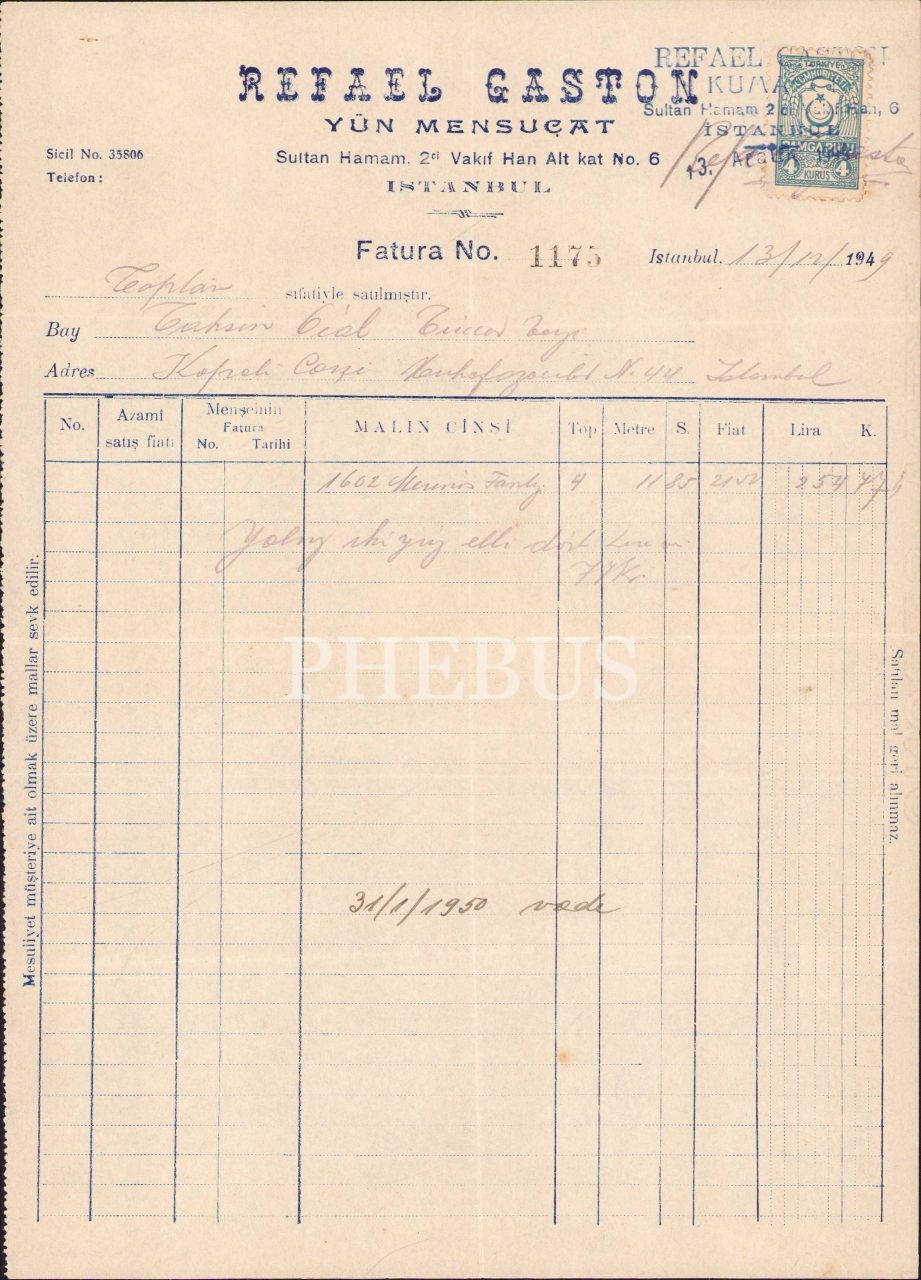 REFAEL GASTON
YÜN MENSUÇAT
Sultan Hamam. 2ci Vakıf Han Alt kat No. 6
ISTANBUL
REFAEL GASTON
KUMA
Sultan Hamam 2 ci Vakıf Han, 6
İSTANBUL
13. Aralık
TÜRKİYE
CUMHURİYETİ
DAMGA PULU
4 KURUŞ 4
Sicil No. 35806
Telefon :
Fatura No. 1175
Istanbul. 13/12/1949
Toptan sıfatiyle satılmıştır.
Bay Tahsin
Adres Kapalı Çarşı No 44 Istanbul
No.
Azamî satış fiatı
Menşeinin Fatura No. Tarihi
MALIN CİNSİ
Top
Metre
S.
Fiat
Lira
K.
1602 Merinos 4 11 85 2150 254 77
Yalnız iki yüz elli dört Lira
77 Kr.
PHEBUS
31/1/1950 vade
Mesuliyet müşteriye ait olmak üzere mallar sevk edilir.
Satılan mal geri alınmaz.